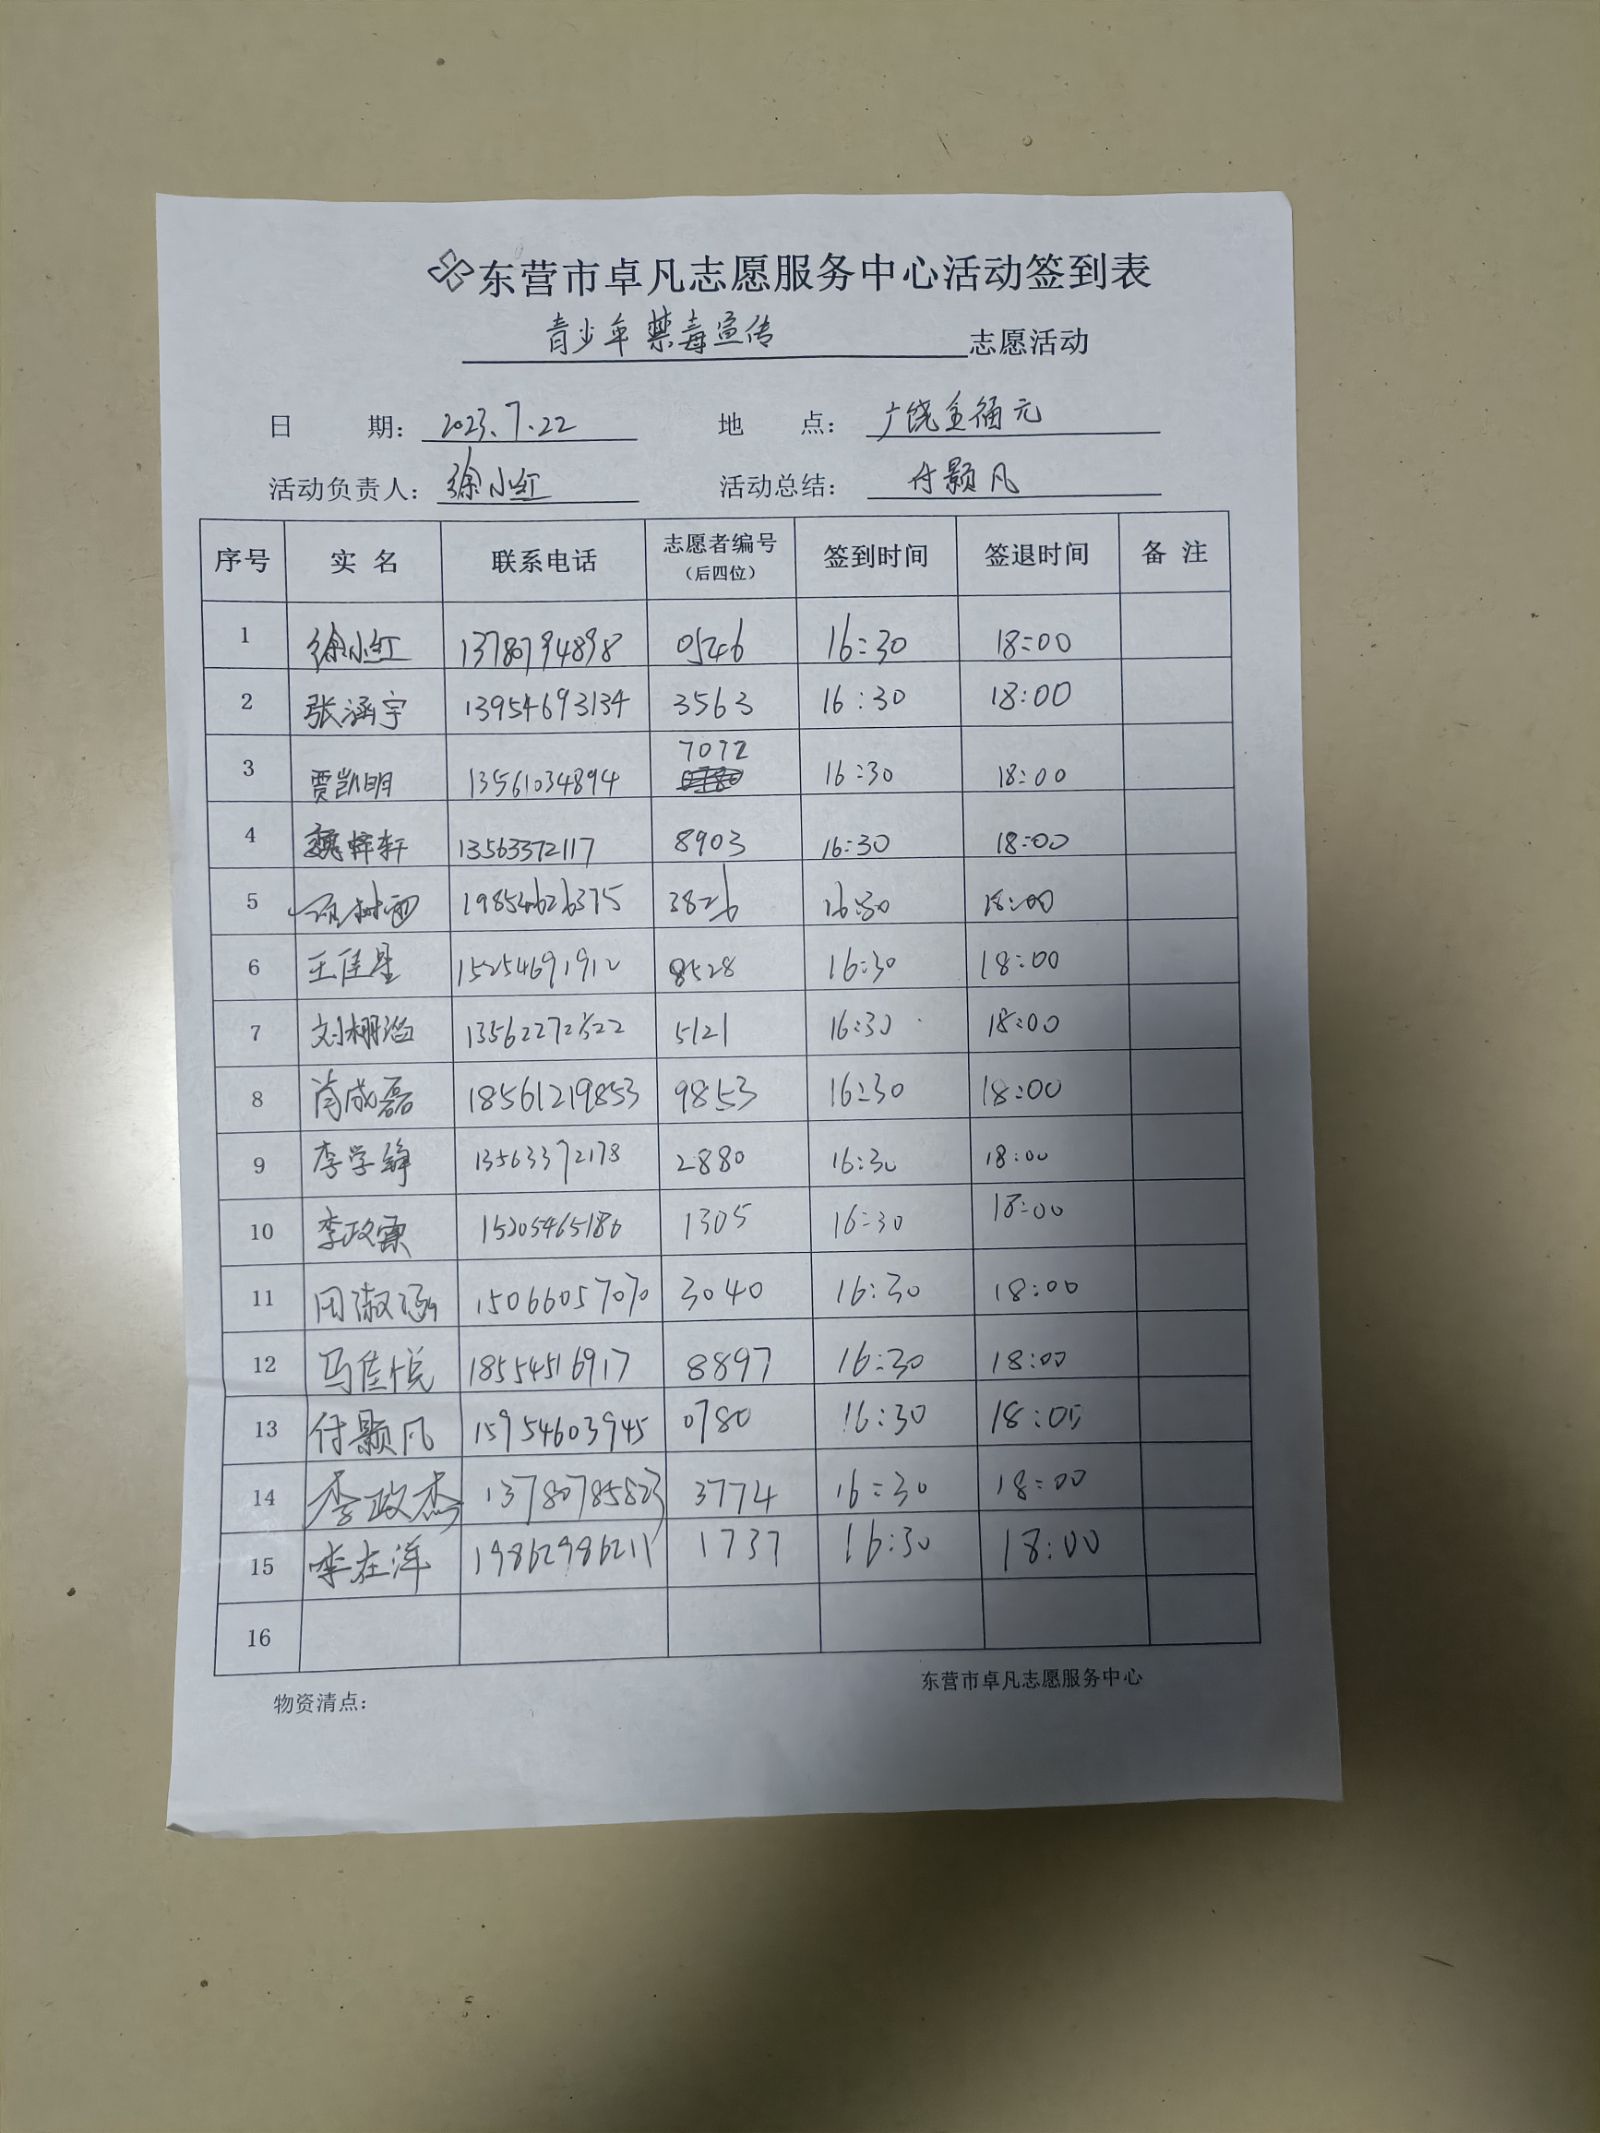 东营市卓凡志愿服务中心活动签到表
青少年禁毒宣传 志愿活动
日 期： 2023.7.22 地 点： 广饶金福元
活动负责人： 徐小红 活动总结： 付颢凡
序号 实 名 联系电话 志愿者编号（后四位） 签到时间 签退时间 备 注
1 徐小红 13780794898 0546 16:30 18:00
2 张涵宇 13954693134 3563 16:30 18:00
3 贾凯明 13561034894 7072 16:30 18:00
4 魏梓轩 13563372117 8903 16:30 18:00
5 19854626375 3826 16:30 18:00
6 王佳星 15254691912 8528 16:30 18:00
7 13562272522 5121 16:30 18:00
8 肖成磊 18561219853 9853 16:30 18:00
9 李学锋 13563372178 2880 16:30 18:00
10 李政霖 15205465186 1305 16:30 18:00
11 田淑涵 15066057070 3040 16:30 18:00
12 马佳悦 18554516917 8897 16:30 18:00
13 付颢凡 15954603945 0780 16:30 18:00
14 李政杰 13780785823 3774 16:30 18:00
15 李在洋 19862986211 1737 16:30 18:00
16
物资清点： 东营市卓凡志愿服务中心